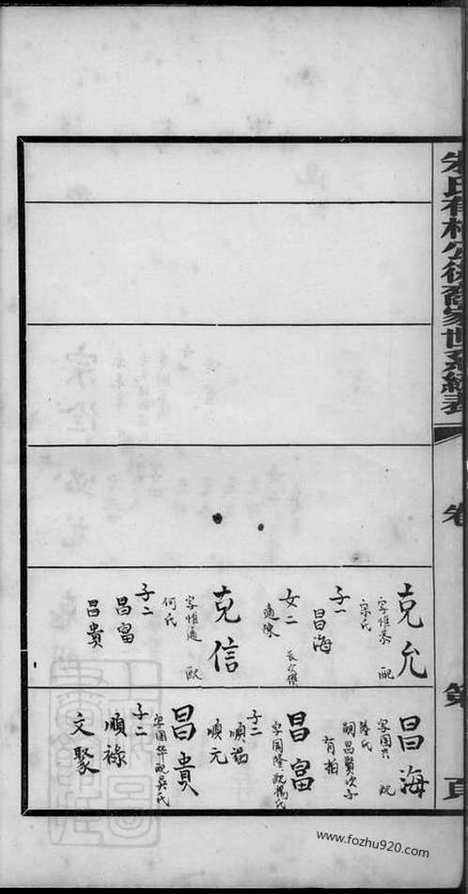 朱氏有相公後裔家世系總表
卷
第
頁
克允
字惟恭 配
宗氏
子一
昌海
女二 長公傑
適陳
克信
字惟通 配
何氏
子二
昌富
昌貴
昌海
字國興 配
氏
嗣昌賢次子
有相
昌富
字國隆配楊氏
子二
順福
順元
昌貴
字國華配吳氏
子二
順祿
文聚
www.fozhu920.com